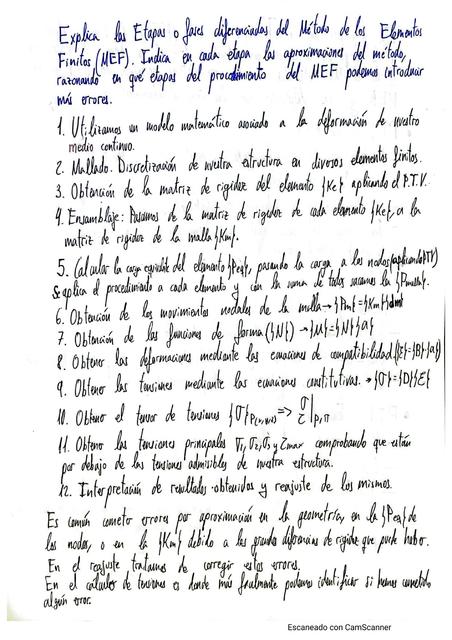 Explica las Etapas o fases diferenciadas del Método de los Elementos
Finitos (MEF). Indica en cada etapa las aproximaciones del método,
razonando en qué etapas del procedimiento del MEF podemos introducir
más errores.
1. Utilizamos un modelo matemático asociado a la deformación de nuestro
medio continuo.
2. Mallado. Discretización de nuestra estructura en diversos elementos finitos.
3. Obtención de la matriz de rigidez del elemento {Ke} aplicando el P.T.V.
4. Ensamblaje: Pasamos de la matriz de rigidez de cada elemento {Ke}, a la
matriz de rigidez de la malla {Km}.
5. Calcular la carga equivalente del elemento {Peq}, pasando la carga a los nodos (aplicando PTV)
Se aplica el procedimiento a cada elemento y con la suma de todos sacamos la {Pmalla}.
6. Obtención de los movimientos nodales de la malla → {Pm}={Km}
7. Obtención de las funciones de forma {N} → {M}={N}{a}
8. Obtener las deformaciones mediante las ecuaciones de compatibilidad {E}={B}{a}
9. Obtener las tensiones mediante las ecuaciones constitutivas. → {σ}={D}{E}
10. Obtener el tensor de tensiones {σ}P(x,y,z) => σ
τ |P,π
11. Obtener las tensiones principales σ1, σ2, σ3 y Zmax comprobando que están
por debajo de las tensiones admisibles de nuestra estructura.
12. Interpretación de resultados obtenidos y reajuste de los mismos.
Es común cometer errores por aproximación en la geometría, en la {Peq} de
los nodos, o en la {Km} debido a las grandes diferencias de rigidez que puede haber.
En el reajuste tratamos de corregir estos errores.
En el cálculo de tensiones es donde más fácilmente podemos identificar si hemos cometido
algún error.
Escaneado con CamScanner